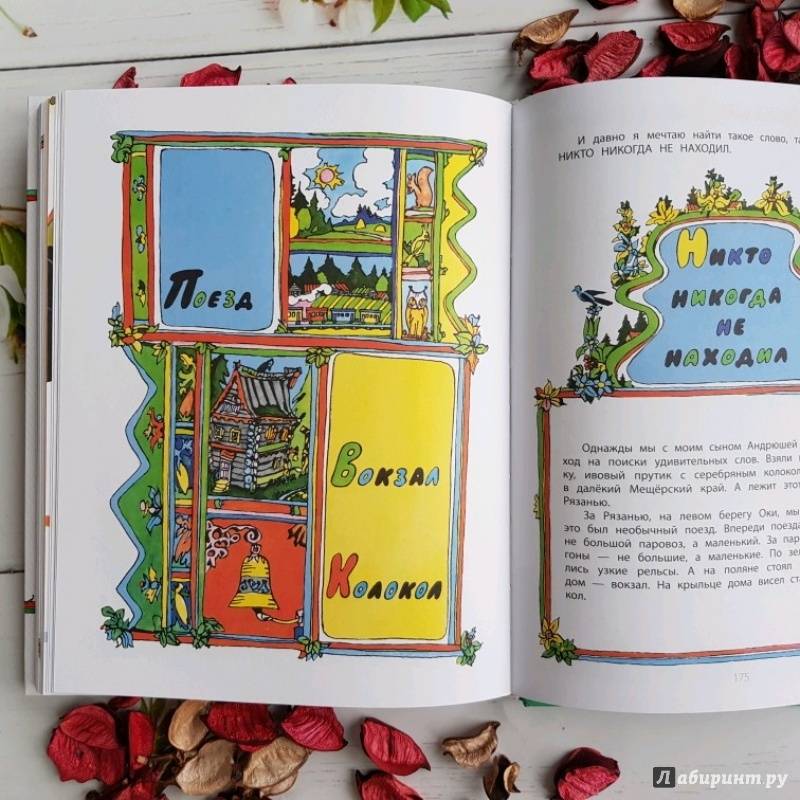 Поезд
Вокзал
Колокол
И давно я мечтаю найти такое слово,
НИКТО НИКОГДА НЕ НАХОДИЛ.
Никто
никогда
не
находил
Однажды мы с моим сыном Андрюшей
ход на поиски удивительных слов. Взяли
ку, ивовый прутик с серебряным
в далёкий Мещёрский край. А лежит
Рязанью.
За Рязанью, на левом берегу Оки, мы
это был необычный поезд. Впереди
не большой паровоз, а маленький. За
гоны — не большие, а маленькие. По
лись узкие рельсы. А на поляне стоял
дом — вокзал. На крыльце дома висел
кол.
175
Лабиринт.ру